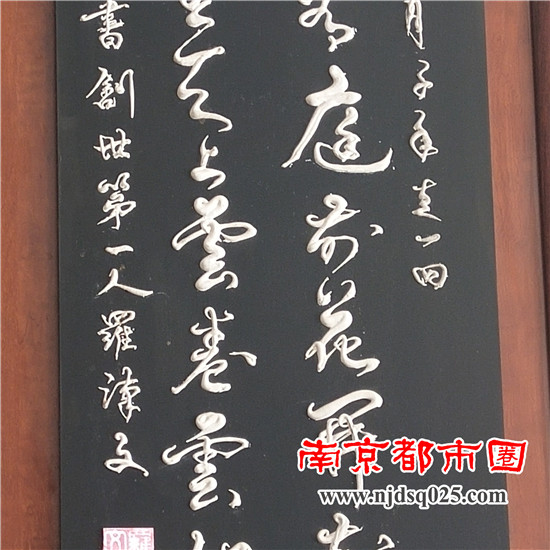 月子年一回
庭前花開花
天上雲卷雲
書創世第一人羅文
南京都市圈
www.njdsq025.com